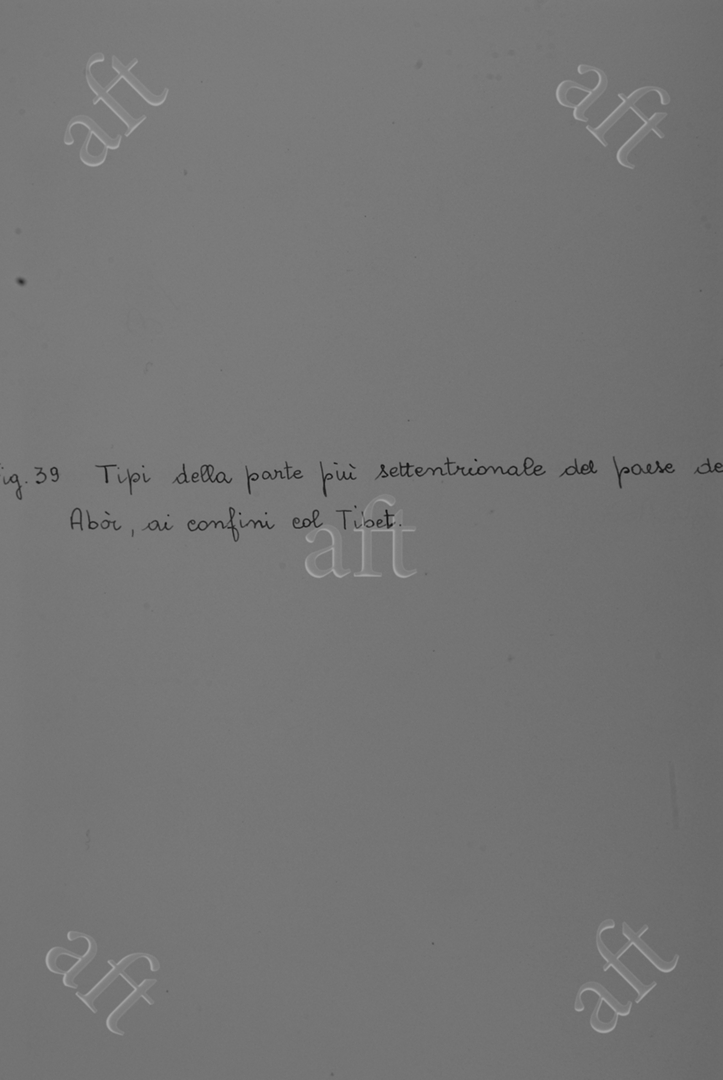 ig. 39 Tipi della parte più settentrionale del paese de
Abòr, ai confini col Tibet.
aft
aft
aft
aft
aft